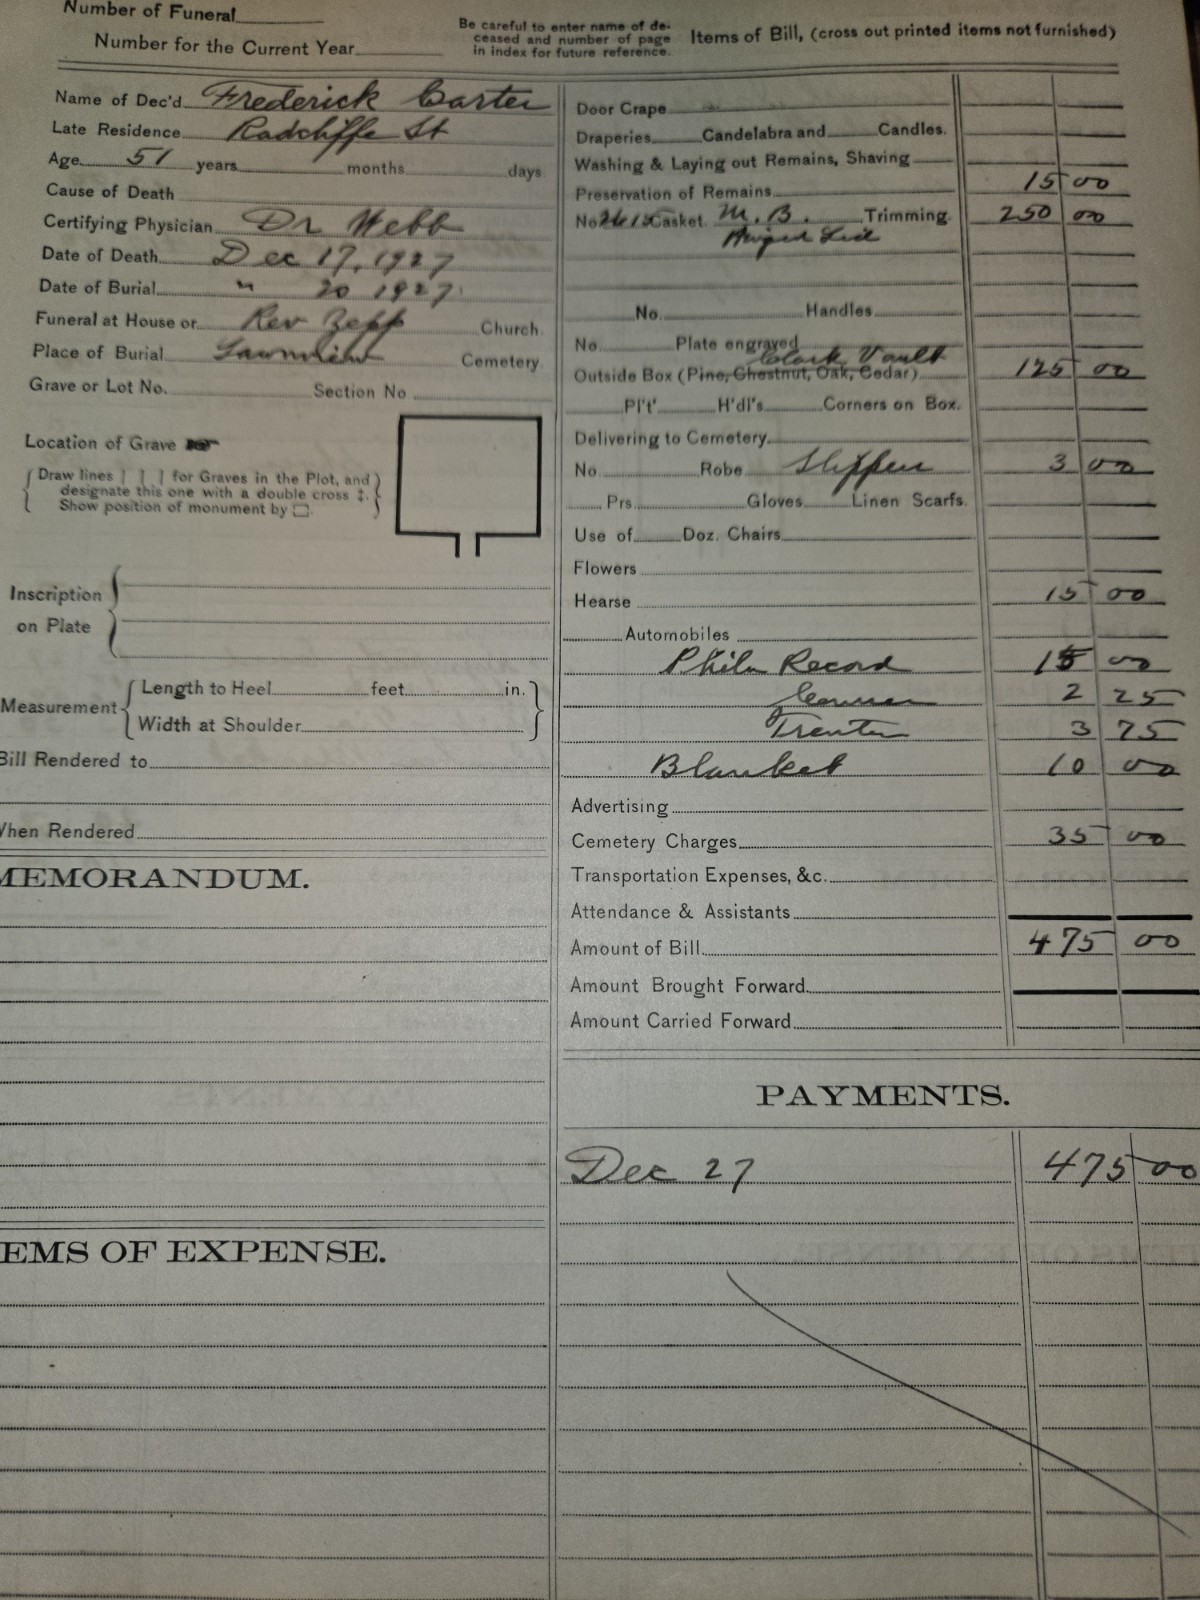 Number of Funeral
Number for the Current Year
Be careful to enter name of de-
ceased and number of page
in index for future reference.
Items of Bill, (cross out printed items not furnished)
Name of Dec'd Frederick Carter
Late Residence Radcliffe St
Age 51 years months days
Cause of Death
Certifying Physician Dr Webb
Date of Death Dec 17, 1927
Date of Burial " 20 1927
Funeral at House or Rev Zepp Church.
Place of Burial Lawnview Cemetery
Grave or Lot No. Section No
Location of Grave
Draw lines | | | for Graves in the Plot, and
designate this one with a double cross ‡.
Show position of monument by □.
Inscription
on Plate
Measurement
Length to Heel feet in.
Width at Shoulder
Bill Rendered to
When Rendered
MEMORANDUM.
EMS OF EXPENSE.
Door Crape
Draperies Candelabra and Candles.
Washing & Laying out Remains, Shaving
Preservation of Remains 15 00
No Casket M. B. Trimming 250 00
Hinged Lid
No. Handles
No. Plate engraved
Clark Vault
Outside Box (Pine, Chestnut, Oak, Cedar) 125 00
Pl't' H'dl's Corners on Box.
Delivering to Cemetery
No. Robe Slippers 3 00
Prs. Gloves Linen Scarfs.
Use of Doz. Chairs
Flowers
Hearse 15 00
Automobiles
Phila Record 15 00
Courier 2 25
Trenton 3 75
Blanket 10 00
Advertising
Cemetery Charges 35 00
Transportation Expenses, &c.
Attendance & Assistants
Amount of Bill 475 00
Amount Brought Forward
Amount Carried Forward
PAYMENTS.
Dec 27 475 00